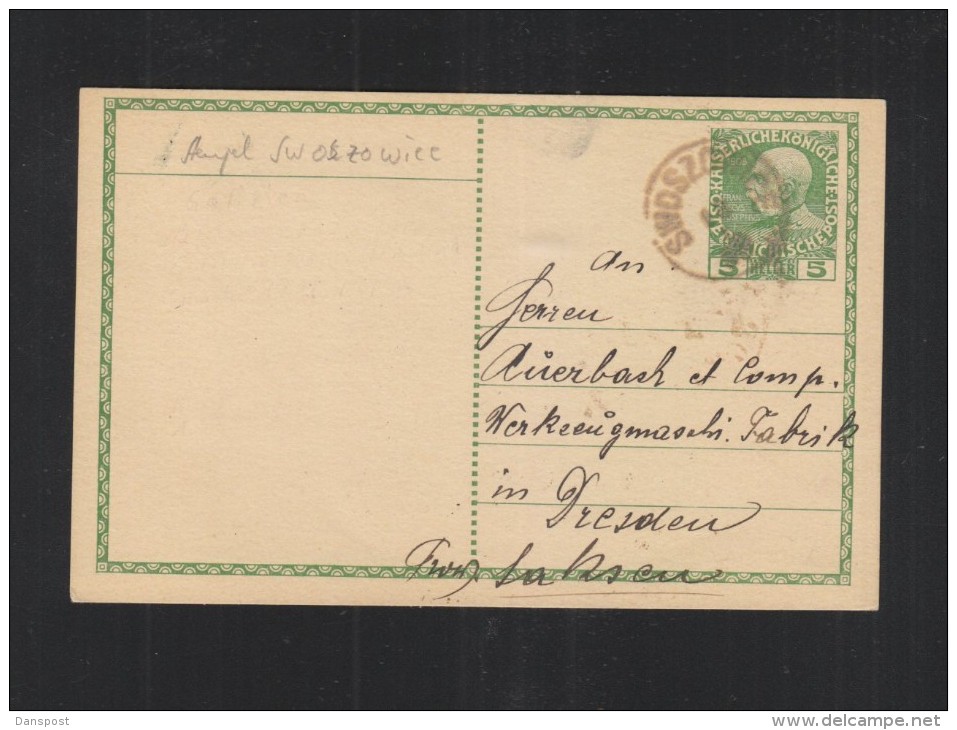 Stempel SWOSZOWICE
KAISERLICHEKÖNIGLICHE
POST
5 HELLER 5
SWOSZO
An
Herren
Auerbach et Comp.
Werkzeugmaschi. Fabrik
in Dresden
Saksen
Danspost
www.delcampe.net